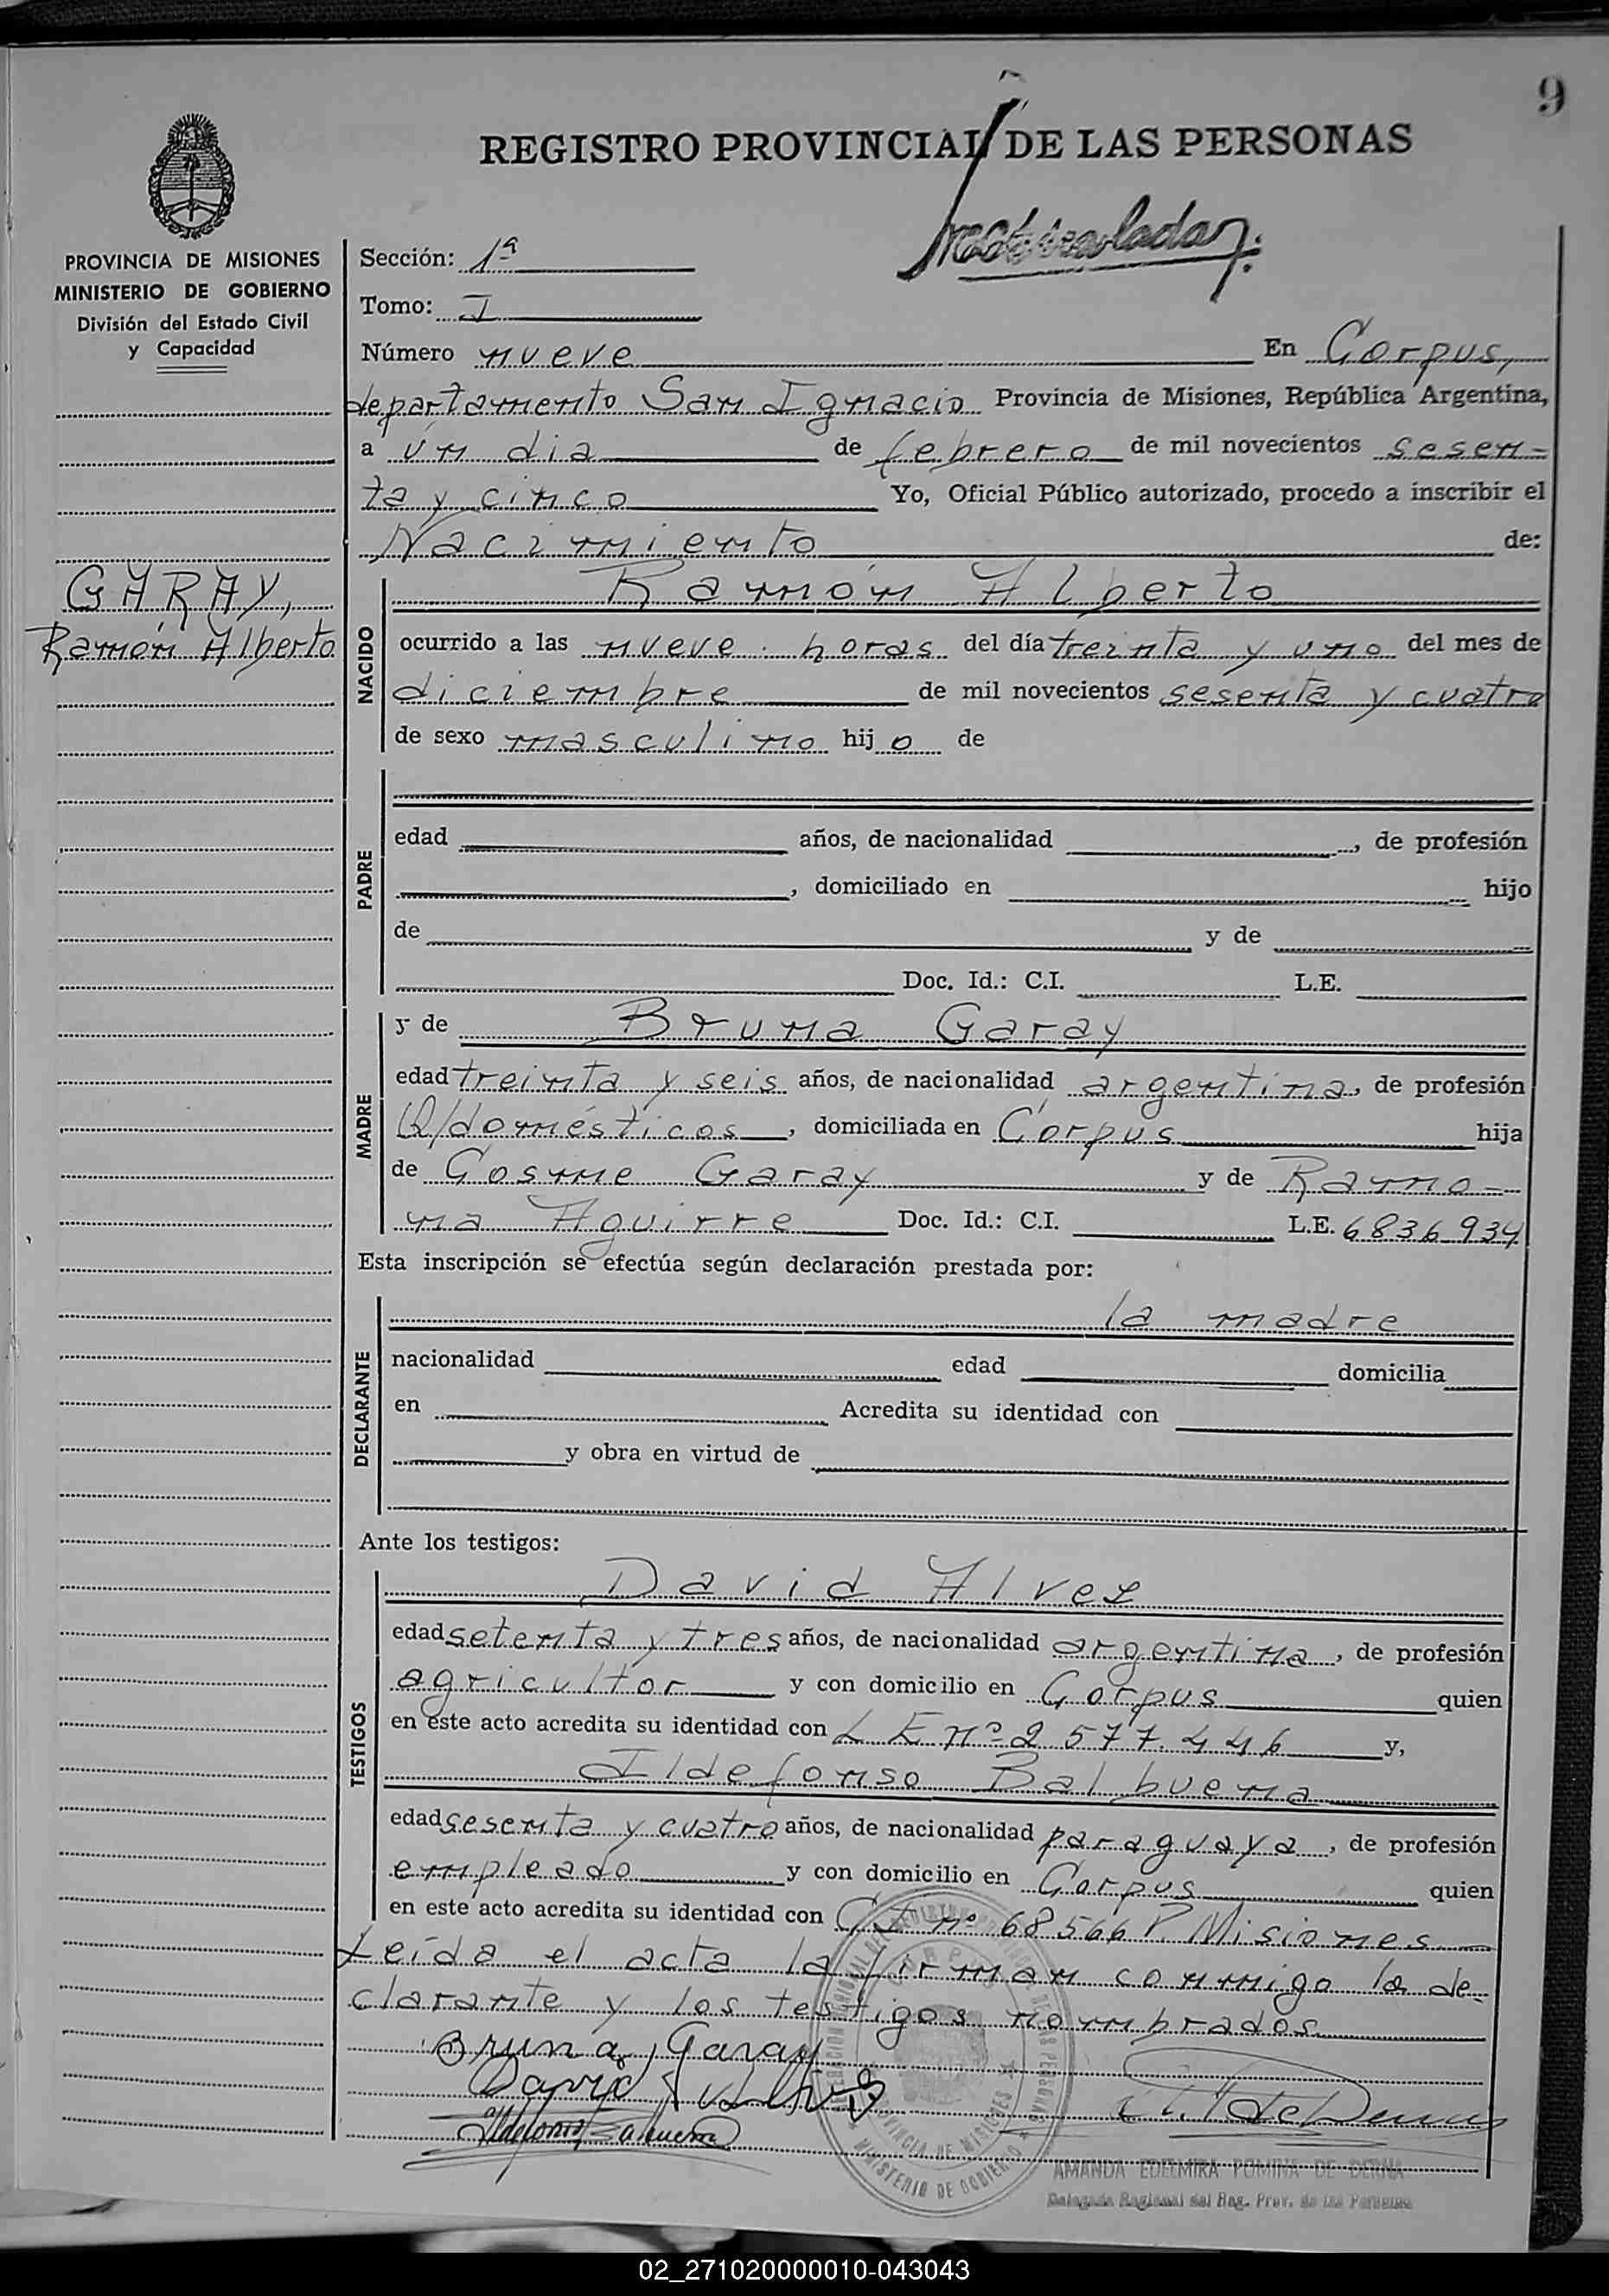 9
REGISTRO PROVINCIAL DE LAS PERSONAS
PROVINCIA DE MISIONES
MINISTERIO DE GOBIERNO
División del Estado Civil
y Capacidad
GARAY,
Ramón Alberto
Sección: 1ª
Tomo: I
Número nueve En Corpus,
departamento San Ignacio Provincia de Misiones, República Argentina,
a ún dia de febrero de mil novecientos sesen-
ta y cinco Yo, Oficial Público autorizado, procedo a inscribir el
Nacimiento de:
NACIDO
Ramón Alberto
ocurrido a las nueve horas del día treinta y uno del mes de
diciembre de mil novecientos sesenta y cuatro
de sexo masculino hijo de
PADRE
edad años, de nacionalidad , de profesión
, domiciliado en hijo
de y de
Doc. Id.: C.I. L.E.
MADRE
y de Bruna Garay
edad treinta y seis años, de nacionalidad argentina, de profesión
Q/domésticos, domiciliada en Corpus hija
de Cosme Garay y de Ramo-
na Aguirre Doc. Id.: C.I. L.E. 6836934
Esta inscripción se efectúa según declaración prestada por:
DECLARANTE
la madre
nacionalidad edad domicilia
en Acredita su identidad con
y obra en virtud de
Ante los testigos:
TESTIGOS
David Alvez
edad setenta y tres años, de nacionalidad argentina, de profesión
agricultor y con domicilio en Corpus quien
en este acto acredita su identidad con L E nº 2 577 446 y,
Ildefonso Balbuena
edad sesenta y cuatro años, de nacionalidad paraguaya, de profesión
empleado y con domicilio en Corpus quien
en este acto acredita su identidad con C I nº 68566 P Misiones
Leída el acta la firman conmigo la de-
clarante y los testigos nombrados
Bruna Garay
David
Ildefonso Balbuena
PROVINCIA DE MISIONES
MINISTERIO DE GOBIERNO
AMANDA EDELMIRA POMINA DE DERNA
Delegada Regional del Reg. Prov. de las Personas
02_271020000010-043043